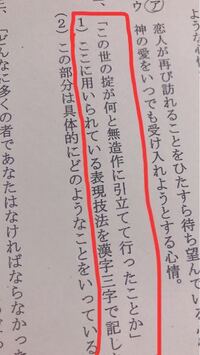 ㋐
ウ
恋人が再び訪れることをひたすら待ち望んでいる
神の愛をいつでも受け入れようとする心情。
「この世の掟が何と無造作に引立てて行ったことか」
(1) ここに用いられている表現技法を漢字三字で記し
(2) この部分は具体的にどのようなことをいっている
「どんなに多くの者であなたはなければならなかった